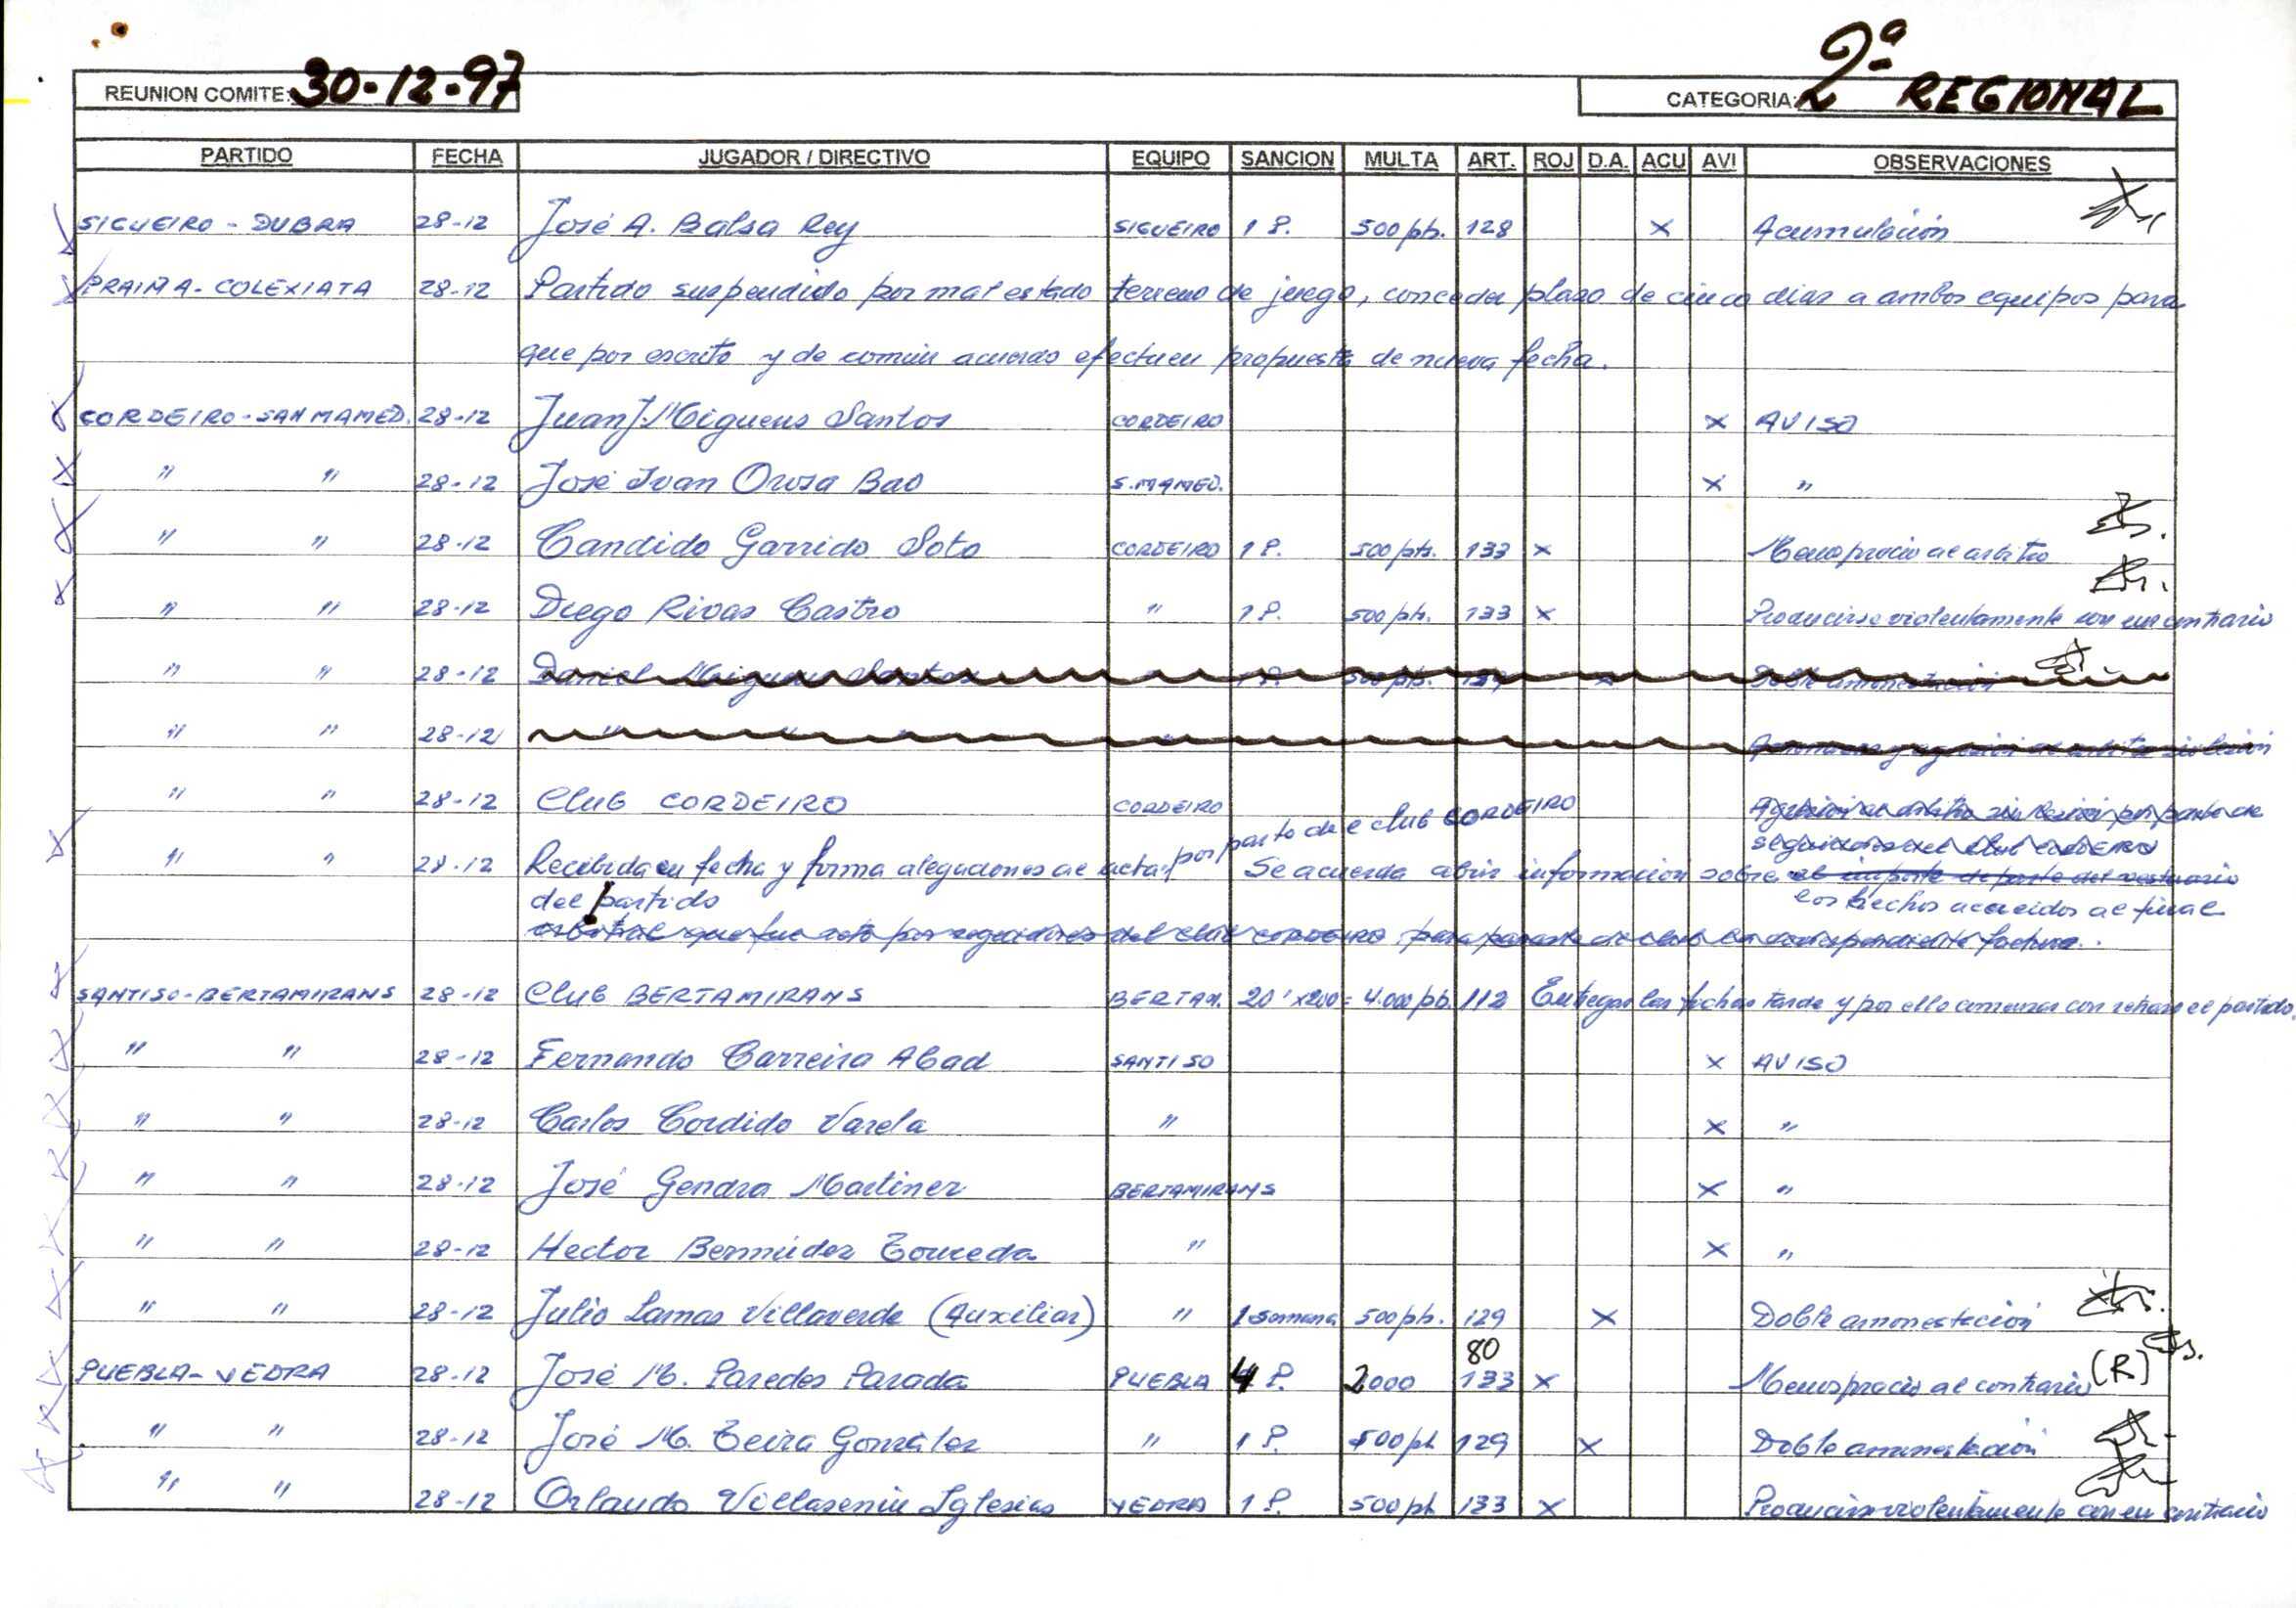 REUNION COMITE: 30-12-97 CATEGORIA: 2ª REGIONAL
PARTIDO FECHA JUGADOR / DIRECTIVO EQUIPO SANCION MULTA ART. ROJ D.A. ACU AVI OBSERVACIONES
SIGUEIRO - DUBRA 28-12 José A. Balsa Rey SIGUEIRO 1 P. 500 pts. 128 X Acumulación
PRAIÑA - COLEXIATA 28-12 Partido suspendido por mal estado terreno de juego, conceder plazo de cinco dias a ambos equipos para
que por escrito y de común acuerdo efectuen propuesta de nueva fecha.
CORDEIRO - SAN MAMED. 28-12 Juan J. Migueus Santos CORDEIRO X AVISO
" " 28-12 José Ivan Orosa Bao S. MAMED. X "
" " 28-12 Candido Garrido Soto CORDEIRO 1 P. 500 pts. 133 X Menosprecio al arbitro
" " 28-12 Diego Rivas Castro " 1 P. 500 pts. 133 X Producirse violentamente con un contrario
" " 28-12 Daniel Santos 1 P. 500 pts. 129 X Doble amonestación
" " 28-12 " " " "
" " 28-12 Club CORDEIRO CORDEIRO Agresión al arbitro sin lesión por parte de
seguidores del Club CORDEIRO
por parte del club CORDEIRO
" " 28-12 Recibida en fecha y forma alegaciones al acta Se acuerda abrir informacion sobre el importe de parte del vestuario
del partido los hechos acaecidos al final
arbitral que fue roto por seguidores del club CORDEIRO, para pasarle al club la correspondiente factura.
SANTISO - BERTAMIRANS 28-12 Club BERTAMIRANS BERTAM. 20' x 200 = 4.000 pts. 112 Entregar las fichas tarde y por ello comenzar con retraso el partido.
" " 28-12 Fernando Carreira Abad SANTISO X AVISO
" " 28-12 Carlos Cordido Varela " X "
" " 28-12 José Gendra Martinez BERTAMIRANS X "
" " 28-12 Hector Bermúdez Touceda " X "
" " 28-12 Julio Lamas Villaverde (Auxiliar) " 1 semana 500 pts. 129 X Doble amonestación
PUEBLA - VEDRA 28-12 José M. Paredes Parada PUEBLA 4 P. 2000 80 133 X Menosprecio al contrario (R)
" " 28-12 José M. Teira González " 1 P. 500 pts 129 X Doble amonestación
" " 28-12 Orlando Villasenin Iglesias VEDRA 1 P. 500 pts 133 X Producirse violentamente con un contrario